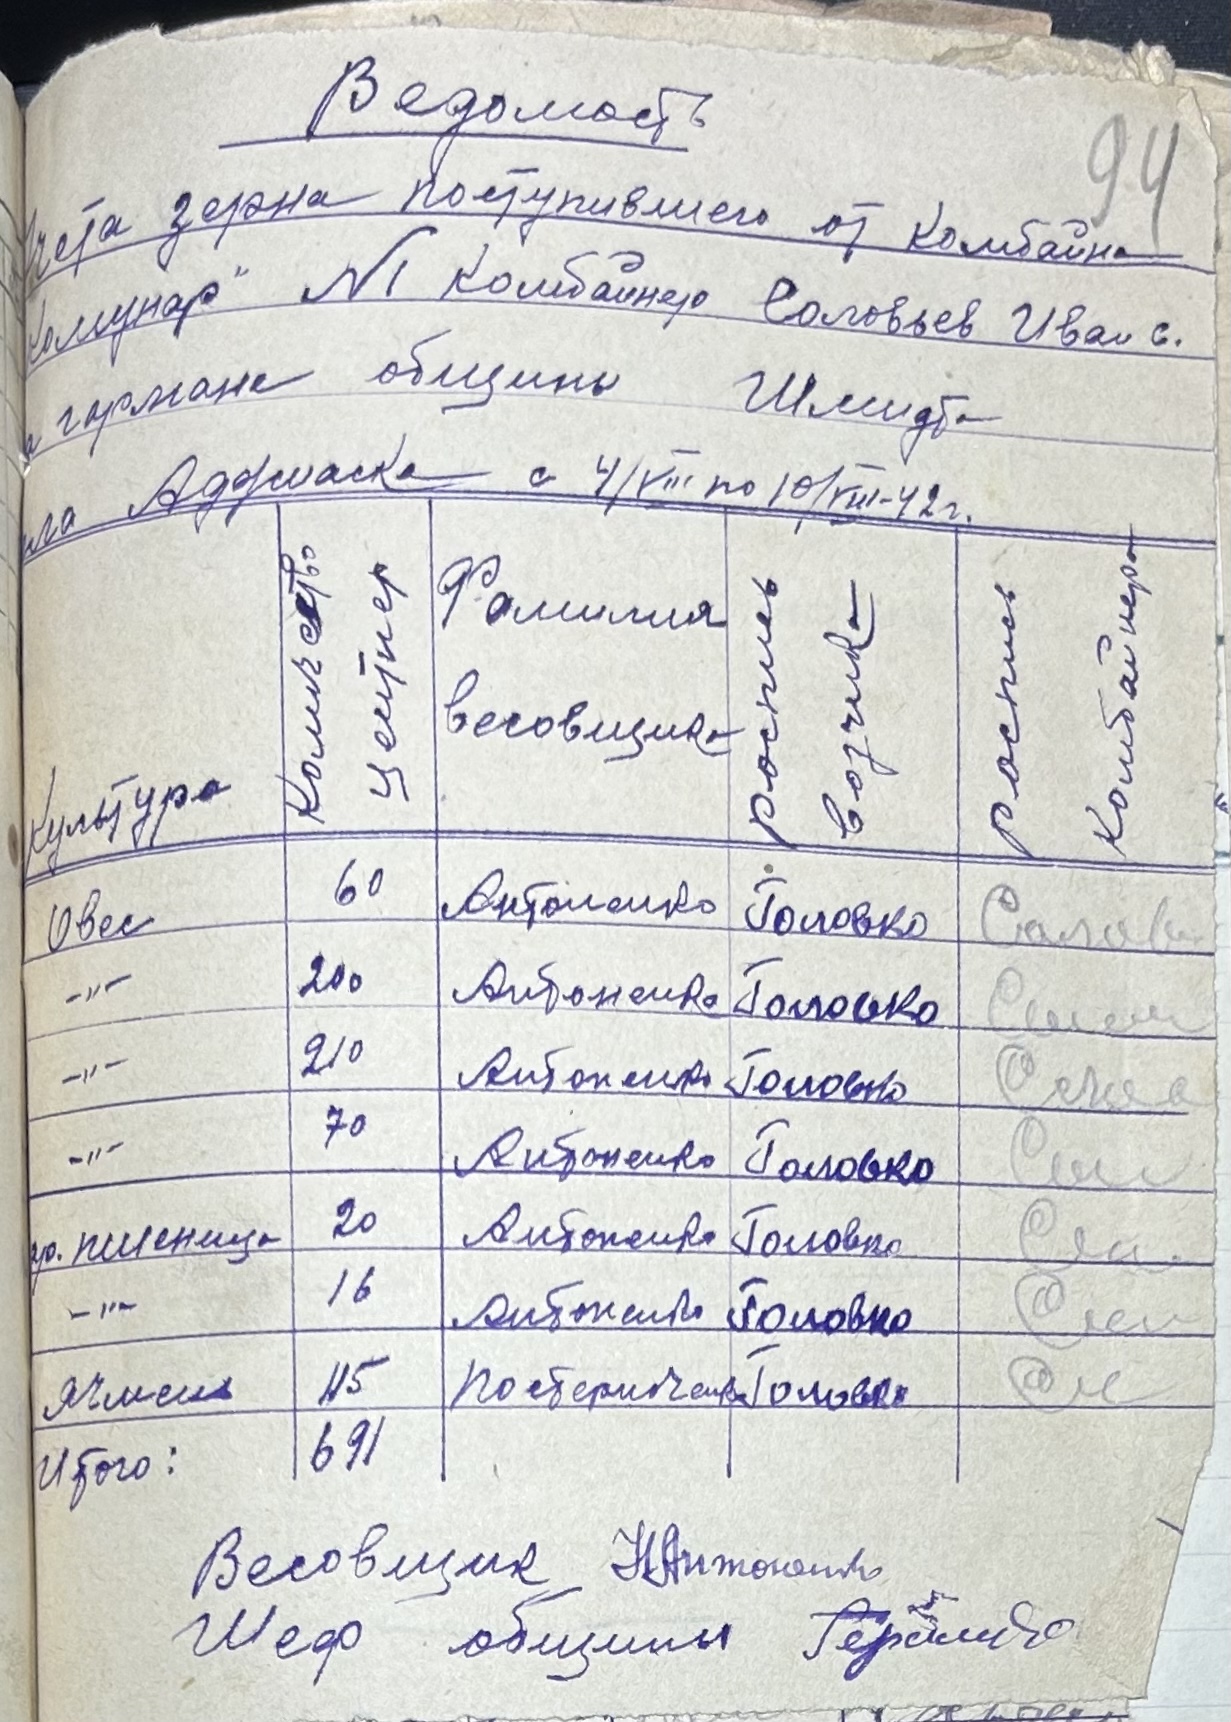 Ведомость
94
учета зерна поступившего от Комбайна
Комунар" №1 Комбайнер Соловьев Иван с.
гармане общины Шмидта
Аджиаска с 4/VIII по 10/VIII-42 г.
Культура Количество центнер Фамилия весовщика Роспись возчика Роспись Комбайнера
Овес 60 Антоненко Головко
-"- 200 Антоненко Головко
-"- 210 Антоненко Головко
-"- 70 Антоненко Головко
яр. пшеница 20 Антоненко Головко
-"- 16 Антоненко Головко
Ячмень 115 Головко
Итого: 691
Весовщик НАнтоненко
Шеф общины